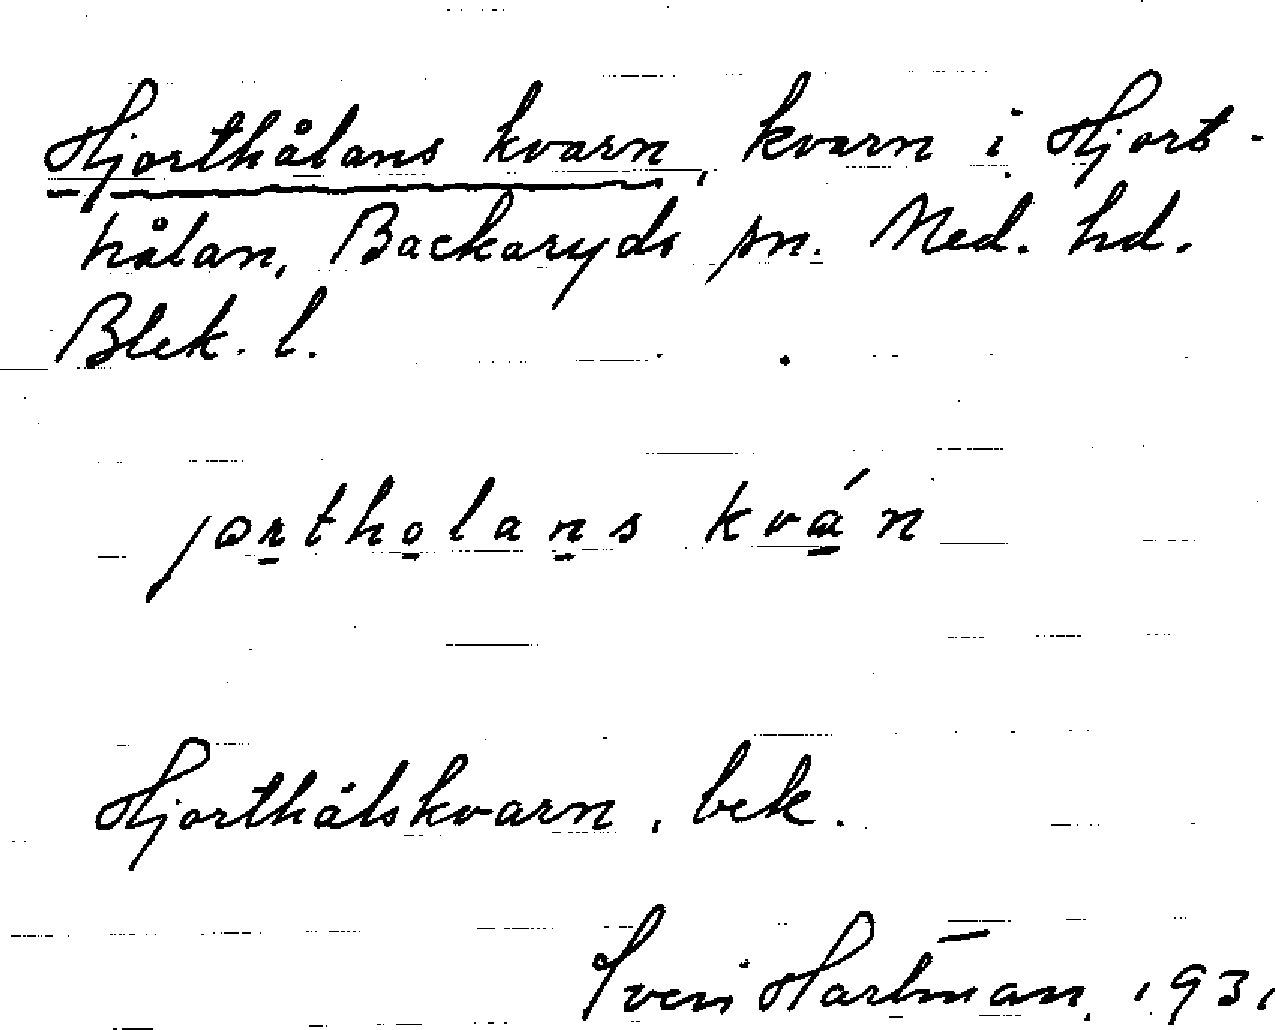 Hjorthålans kvarn, kvarn i Hjort-
hålan, Backaryds sn. Med. hd.
Blek. l.
jortholans kván
Hjorthålskvarn, bek.
Sven Hartman, 1931